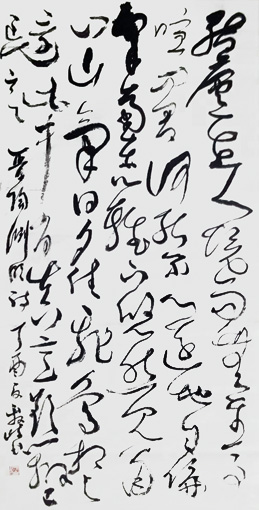 結廬在人境而無車馬
喧問君何能爾心遠地自偏
採菊東籬下悠然見南
山山氣日夕佳飛鳥相與
還此中有真意欲辨已
忘言 晉陶淵明詩 丁酉